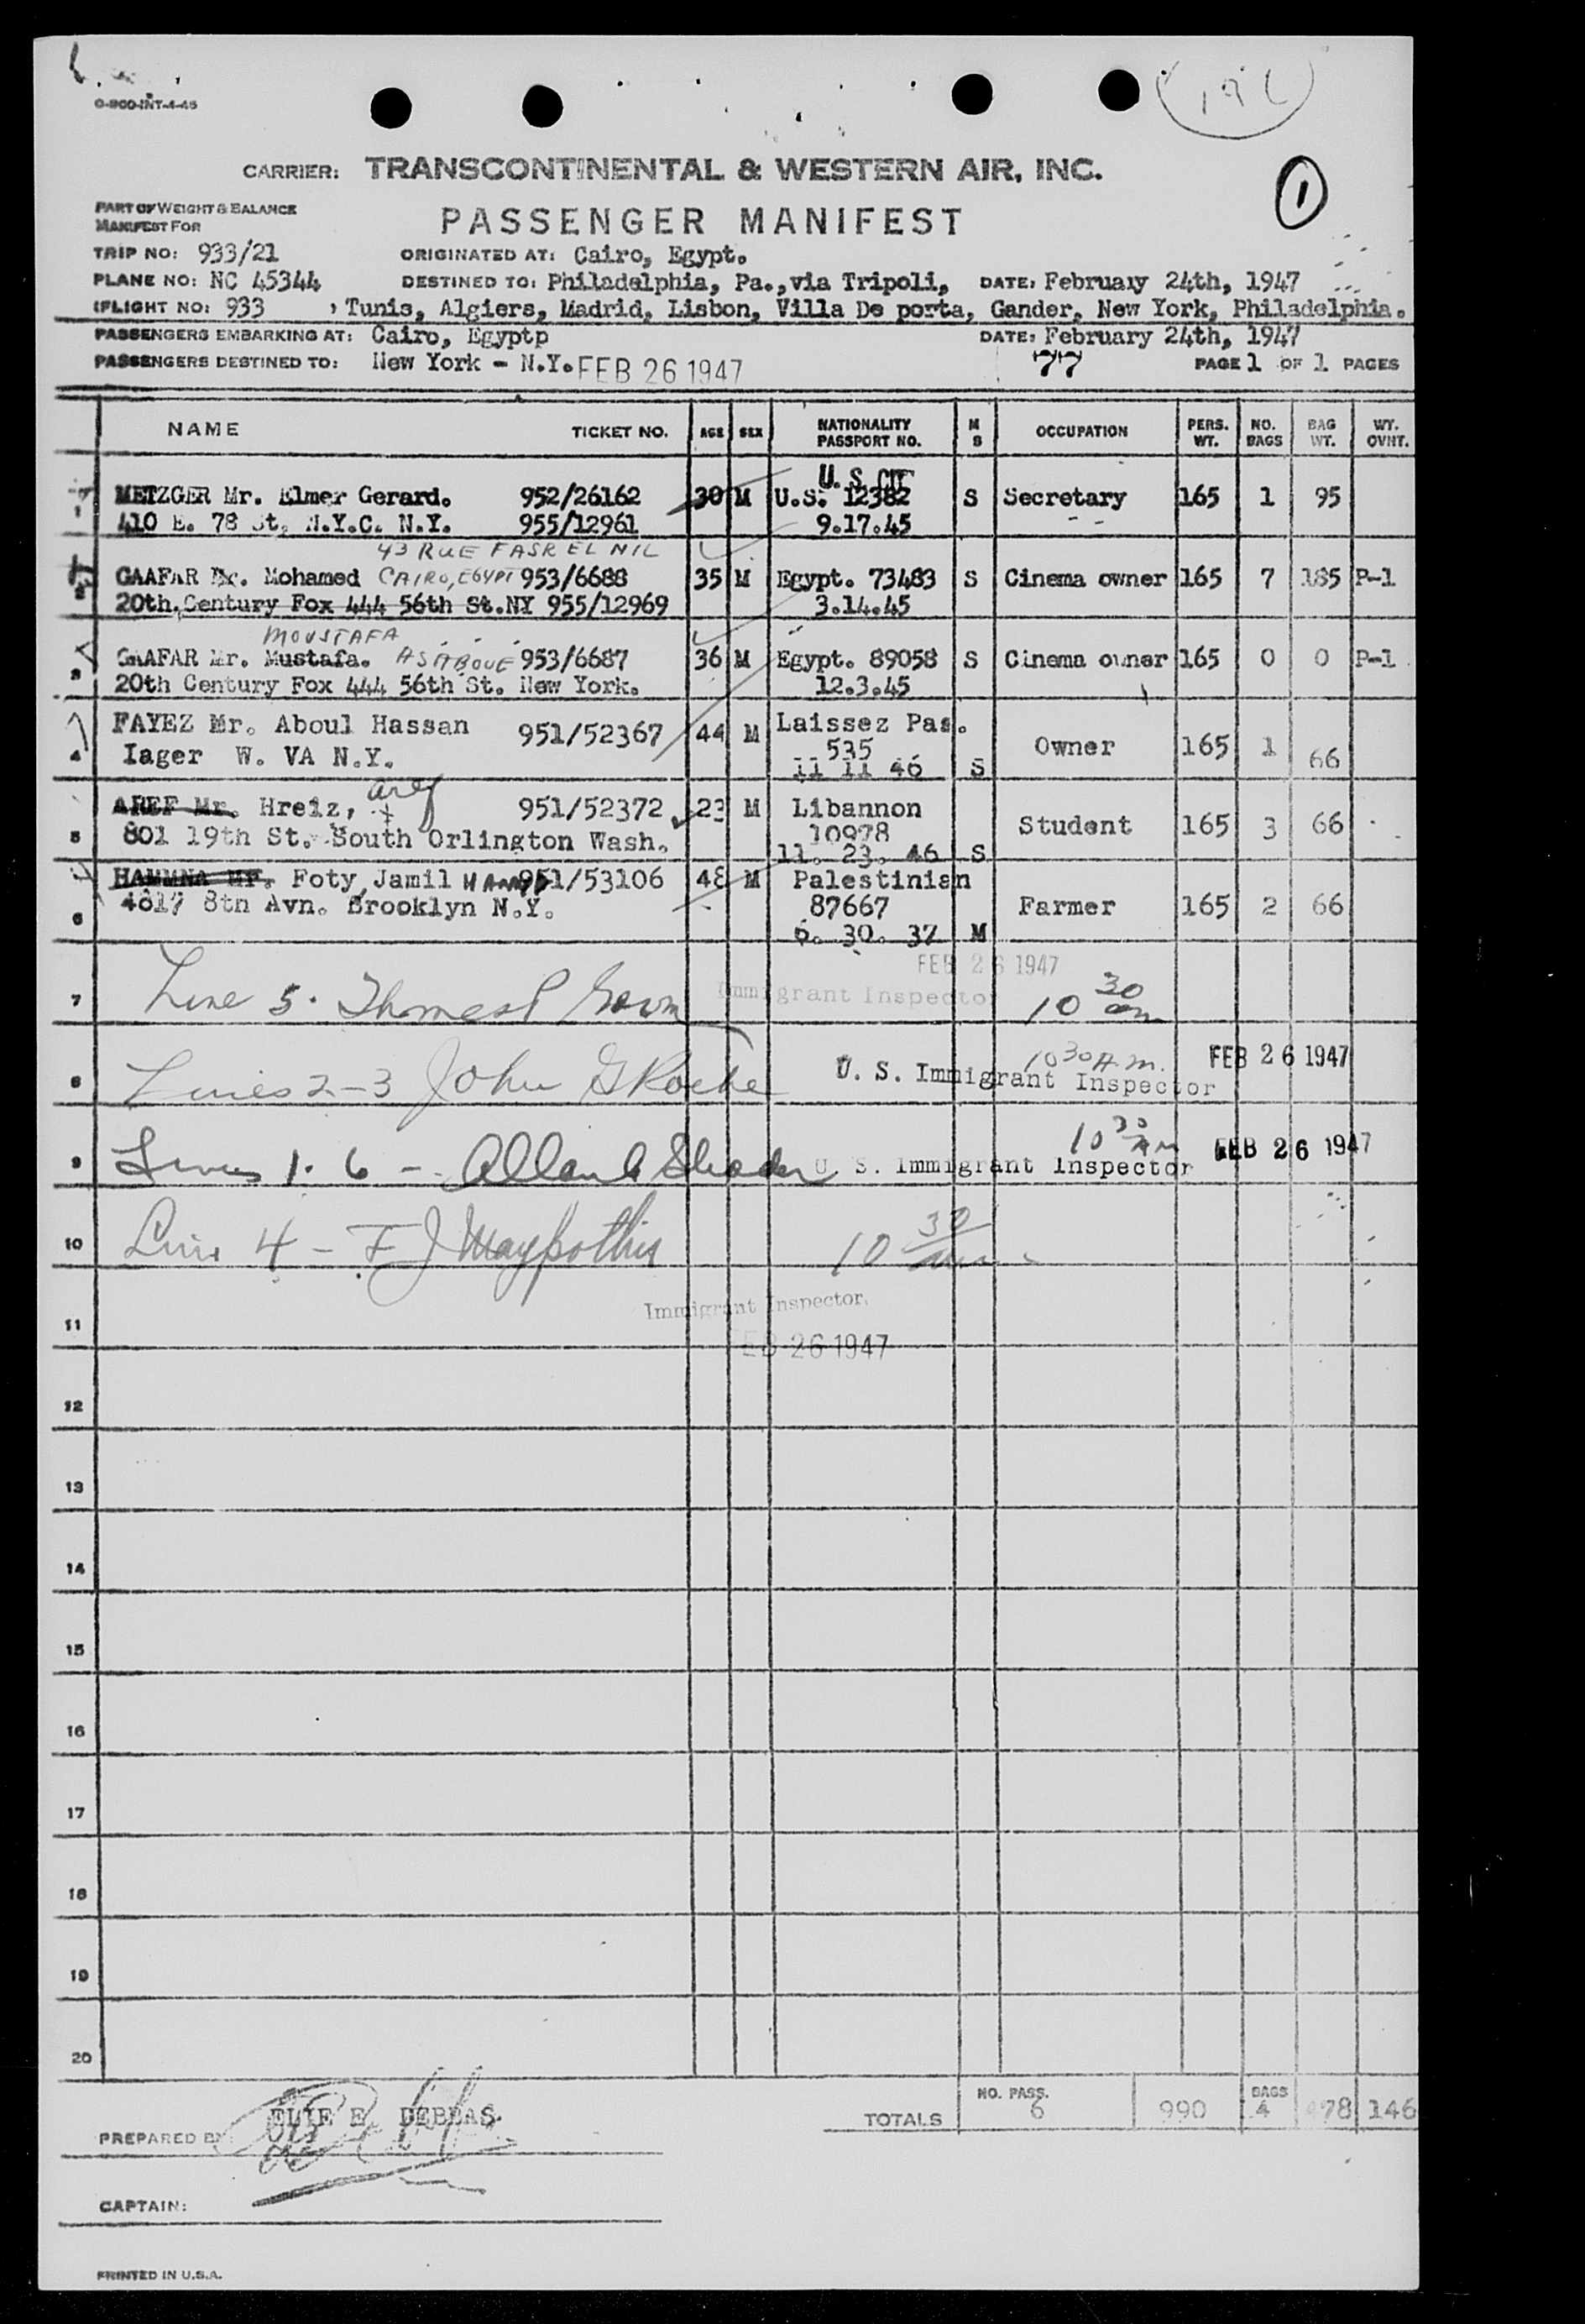 O-900-INT-4-45
CARRIER: TRANSCONTINENTAL & WESTERN AIR, INC.
1
PART OF WEIGHT & BALANCE
MANIFEST FOR
PASSENGER MANIFEST
TRIP NO: 933/21 ORIGINATED AT: Cairo, Egypt.
PLANE NO: NC 45344 DESTINED TO: Philadelphia, Pa.,via Tripoli, DATE: February 24th, 1947
FLIGHT NO: 933 , Tunis, Algiers, Madrid, Lisbon, Villa De porta, Gander, New York, Philadelphia.
PASSENGERS EMBARKING AT: Cairo, Egyptp DATE: February 24th, 1947
PASSENGERS DESTINED TO: New York - N.Y. FEB 26 1947 77 PAGE 1 OF 1 PAGES
NAME TICKET NO. AGE SEX NATIONALITY PASSPORT NO. M S OCCUPATION PERS. WT. NO. BAGS BAG WT. WT. OVHT.
U.S. CIT
1 METZGER Mr. Elmer Gerard. 952/26162 30 M U.S. 12382 S Secretary 165 1 95
410 E. 78 St, N.Y.C. N.Y. 955/12961 9.17.45
43 RUE FASR EL NIL
2 GAAFAR Mr. Mohamed CAIRO, EGYPT 953/6688 35 M Egypt. 73483 S Cinema owner 165 7 185 P-1
20th.Century Fox 444 56th St.NY 955/12969 3.14.45
MOUSTAFA
3 GAAFAR Mr. Mustafa. AS ABOVE 953/6687 36 M Egypt. 89058 S Cinema owner 165 0 0 P-1
20th Century Fox 444 56th St. New York. 12.3.45
4 FAYEZ Mr. Aboul Hassan 951/52367 44 M Laissez Pas. Owner 165 1 66
Iager W. VA N.Y. 535
11 11 46 S
Aref
5 AREF Mr. Hreiz, 951/52372 23 M Libannon Student 165 3 66
801 19th St. South Orlington Wash. 10978
11. 23. 46 S
6 HAMMNA Mr. Foty, Jamil 951/53106 48 M Palestinian Farmer 165 2 66
4817 8th Avn. Brooklyn N.Y. 87667
6. 30. 37 M
FEB 26 1947
7 Line 5. Immigrant Inspector 10 30 am
8 Lines 2-3 John G Roche U. S. Immigrant Inspector 10 30 A.m. FEB 26 1947
9 Lines 1. 6 - U. S. Immigrant Inspector 10 30 AM FEB 26 1947
10 Line 4 - F J 10 30 am
Immigrant Inspector.
11
FEB 26 1947
12
13
14
15
16
17
18
19
20
TOTALS NO. PASS. 6 990 BAGS 4 478 146
PREPARED BY ELIE E. DEBBAS.
CAPTAIN:
PRINTED IN U.S.A.